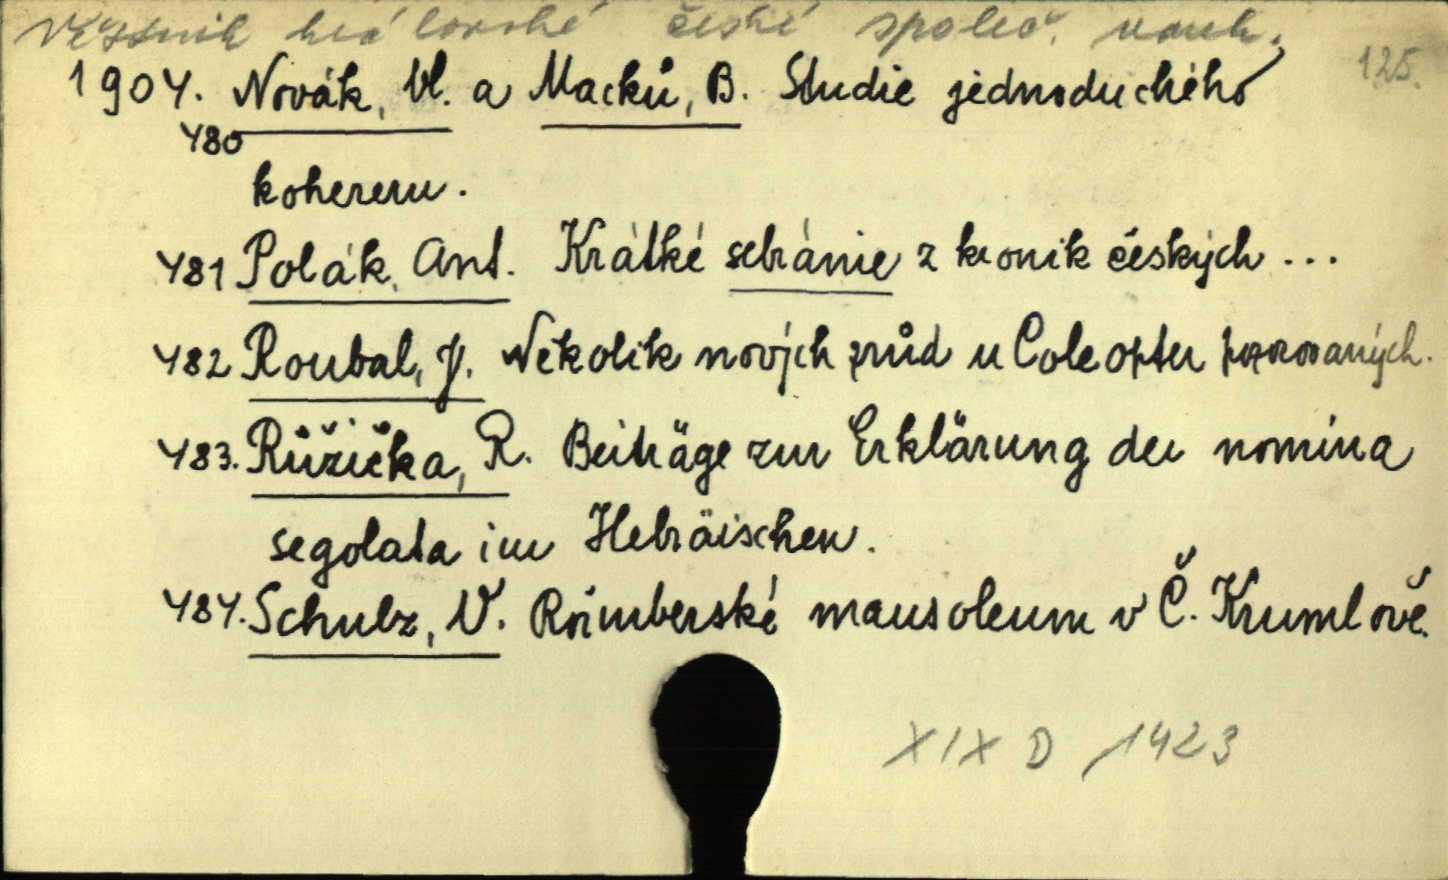 Věstník královské české společ. nauk.
125.
1904. Novák, Vl. a Macků, B. Studie jednoduchého
480
kohereru.
481 Polák, Ant. Krátké sebránie z kronik českých ...
482 Roubal, J. Několik nových zrůd u Coleopter pozorovaných.
483. Růžička, R. Beiträge zur Erklärung der nomina
segolata im Hebräischen.
484. Schulz, V. Rožmberské mausoleum v Č. Krumlově.
XIX D 1423